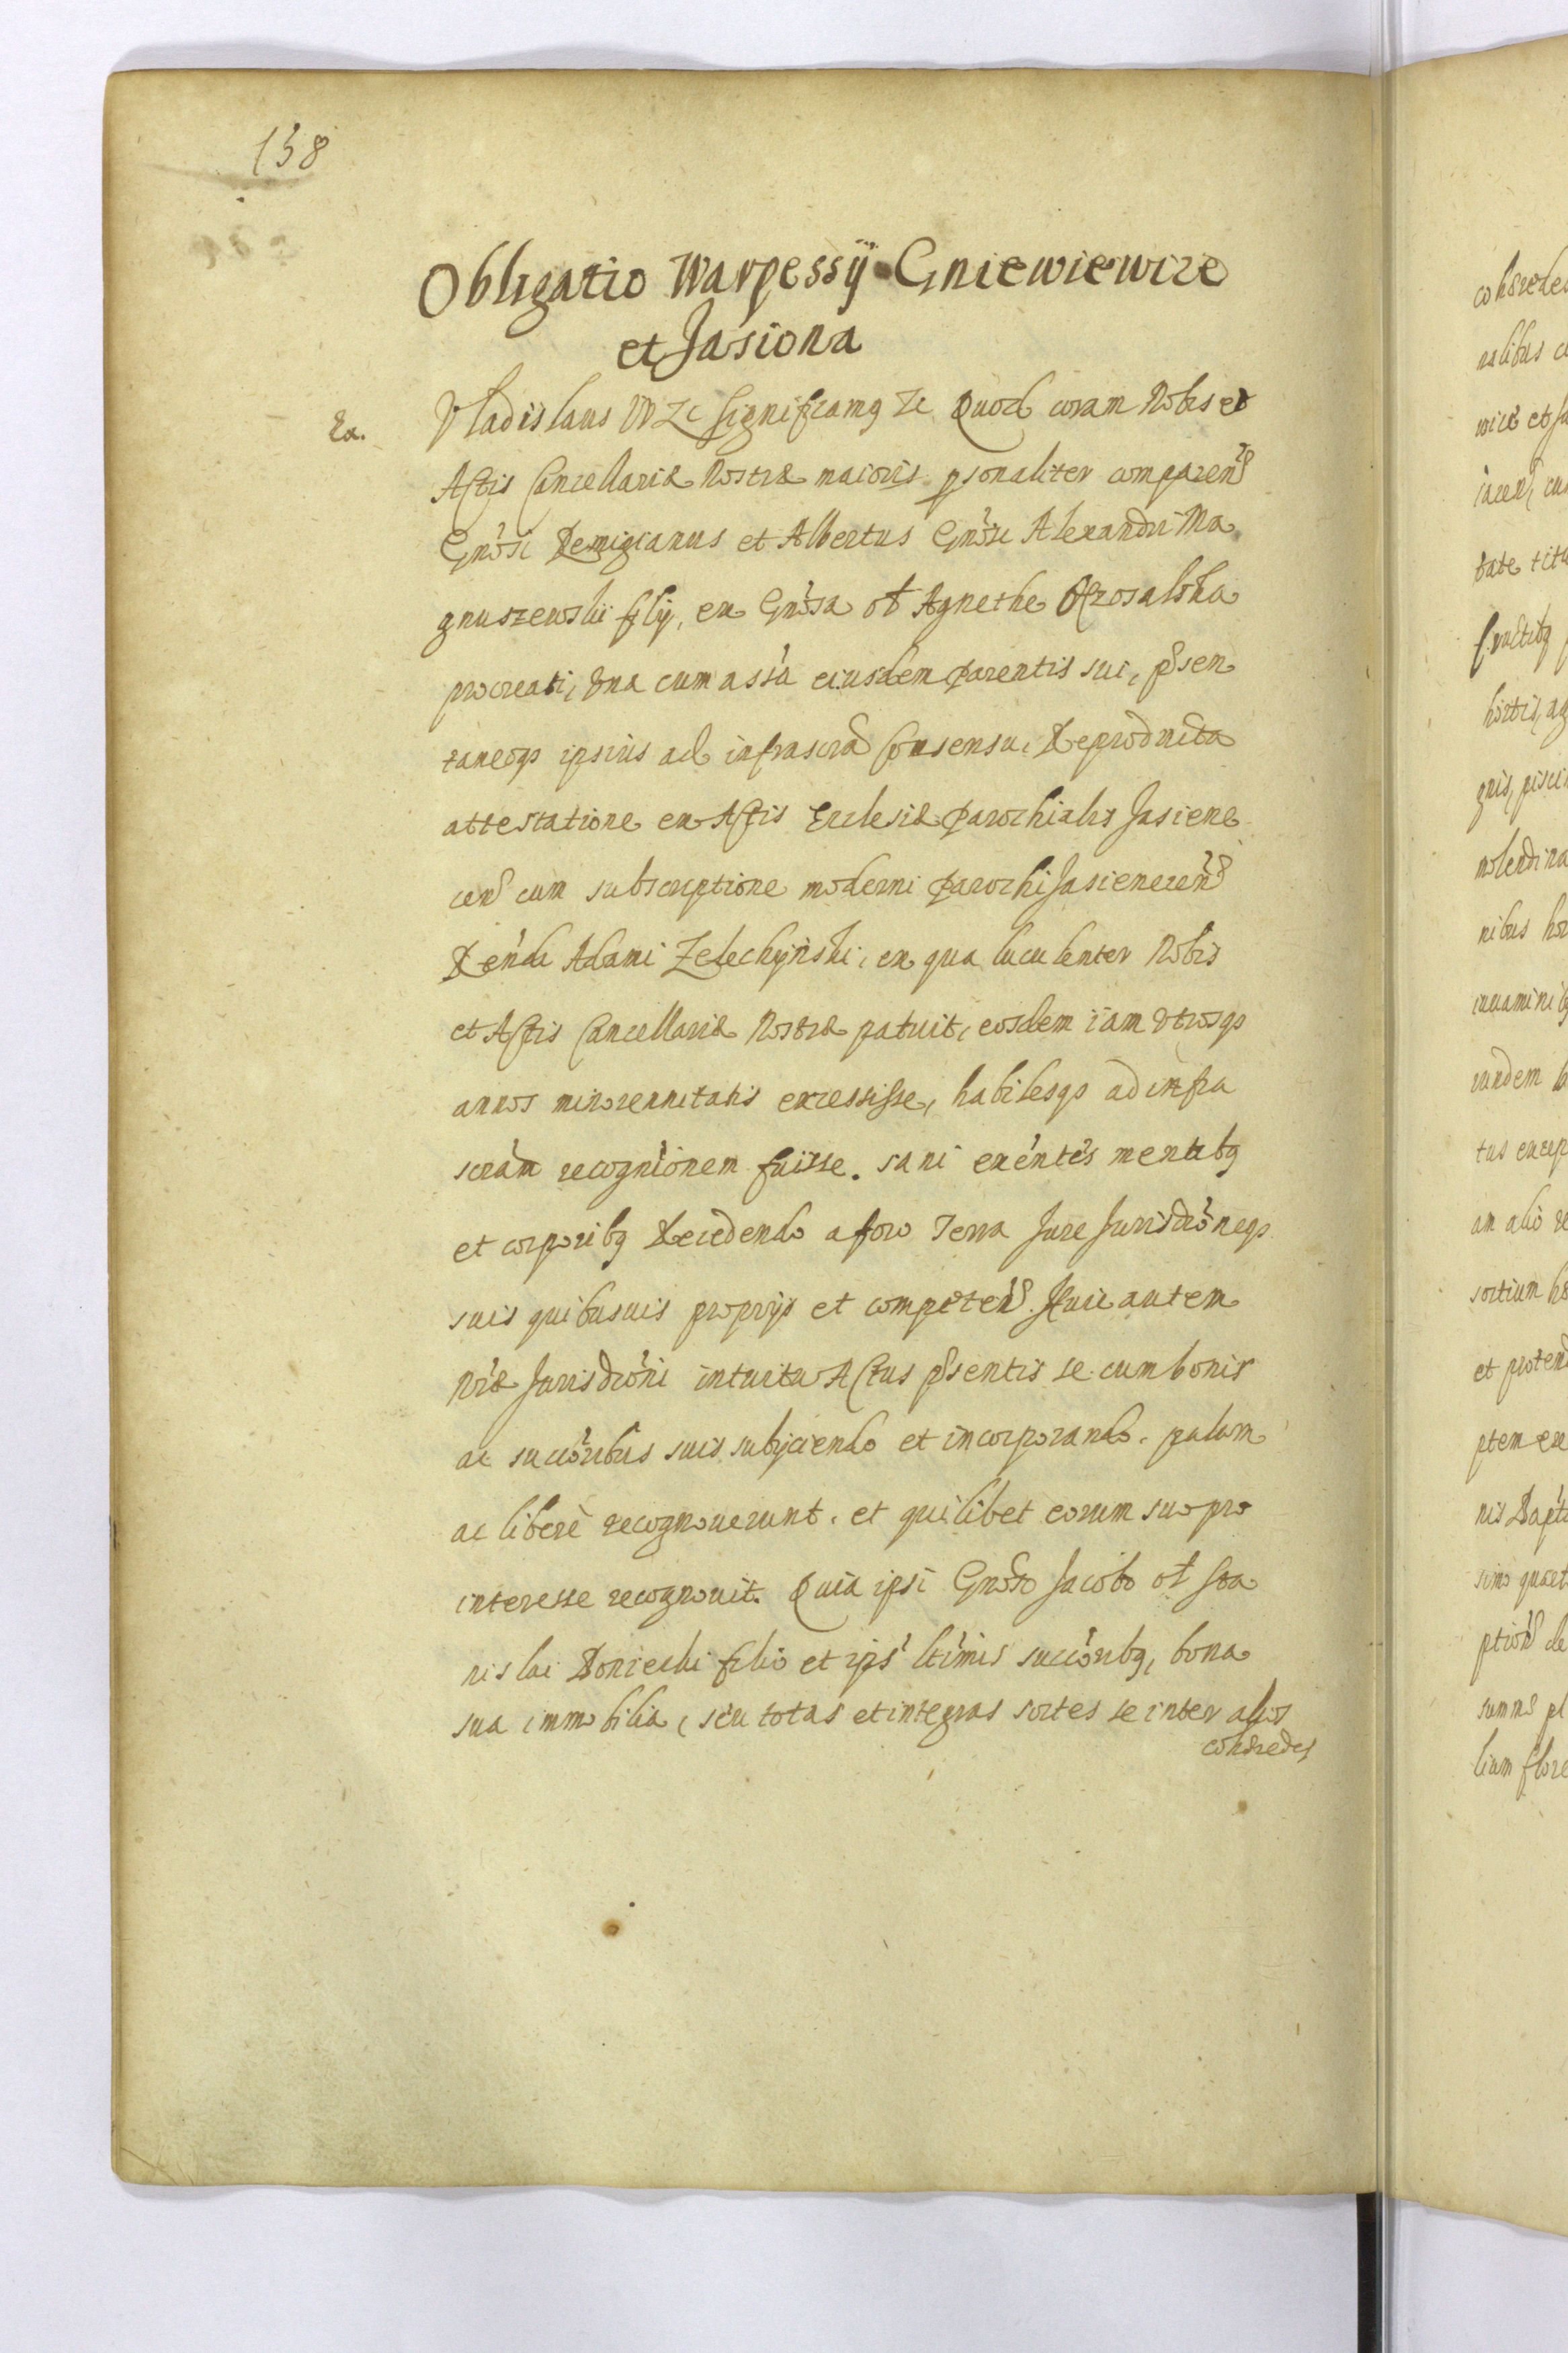 138
Obligatio Warpessÿ Gniewiewice
et Jasiona
Ex.
Vladislaus IV Zc Significamq Zc Quod coram Nobis et
Actis Cancellariæ Nostræ maioris psonaliter comparen
Gnosi Remigianus et Albertus Gnosi Alexandri Ma
gnuszewski filij, ex Gnosa ol Agnethe
procreati, una cum assa eiusdem Parentis sui, psen
taneoqs ipsius ad infrascra Consensu, Reproducta
attestatione ex Actis Ecclesiæ Parochialis Jasiene
cen cum subscriptione moderni Parochi Jasienecen
Rendi Adami Zelechÿnski, ex qua luculenter Nobis
et Actis Cancellariæ Nostræ patuit, eosdem iam utrosqs
annos minorennitatis excessisse, habilesqs ad infra
scram recognionem fuisse. sani exentes mentibq
et corporibq Recedendo a foro Terra Jure Jurisdioneqs
suis quibusuis proprijs et competen. Huic autem
Nræ Jurisdioni intuitu Actus psentis se cum bonis
ac succoribus suis subijciendo et incorporando. palam
ac liberè recognouerunt. et quilibet eorum suo pro
interesse recognouit. Quia ipsi Gnoso Jacobo ol Sta
nislai Boniecki filio et ips ltimis succoribq, bona
sua immobilia, seu totas et integras sortes se inter alios
cohæredes
cohærede
nalibus
wice et
iacen,
tate
fructibq
hortis, ag
gnis, pisci
molendina
nibus
iuuamini
rundem
tus excep
an alio
sortium
et proten
ptem
nis Bapt
simo
ption de
summ
lium flore